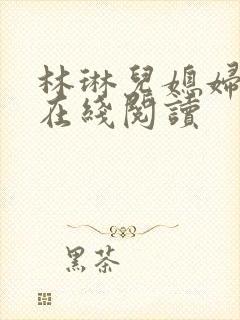 林琳兒媳婦
在綫閱讀
黑茶